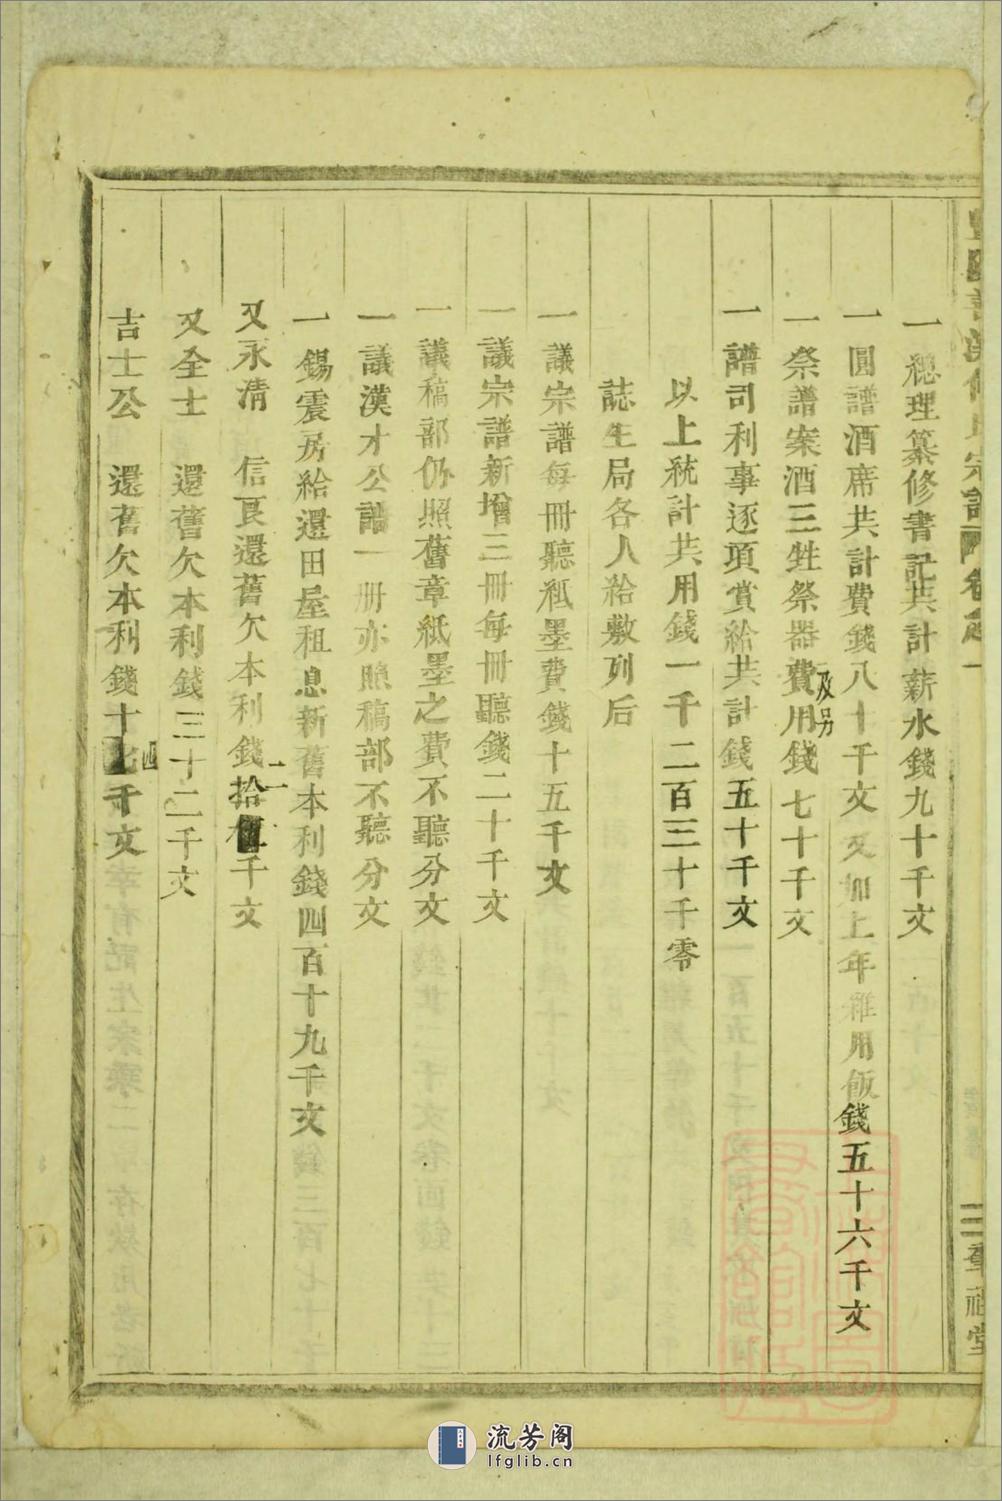 宗譜
卷之一
一總理纂修書記共計薪水錢九十千文
一圓譜酒席共計費錢八十千文又加上年雜用飯錢五十六千文
一祭譜案酒三牲祭器費及另用錢七十千文
一譜司利事逐項賞給共計錢五十千文
以上統計共用錢一千二百三十千零
誌生局各人給敷列后
一議宗譜每冊聽紙墨費錢十五千文
一議宗譜新增三冊每冊聽錢二十千文
一議稿部仍照舊章紙墨之費不聽分文
一議漢才公譜一冊亦照稿部不聽分文
一錫震房給還田屋租息新舊本利錢四百十九千文
又永清 信艮還舊欠本利錢拾二千文
又全士 還舊欠本利錢三十二千文
吉士公 還舊欠本利錢十四千文
三
堂
流芳阁
lfglib.cn